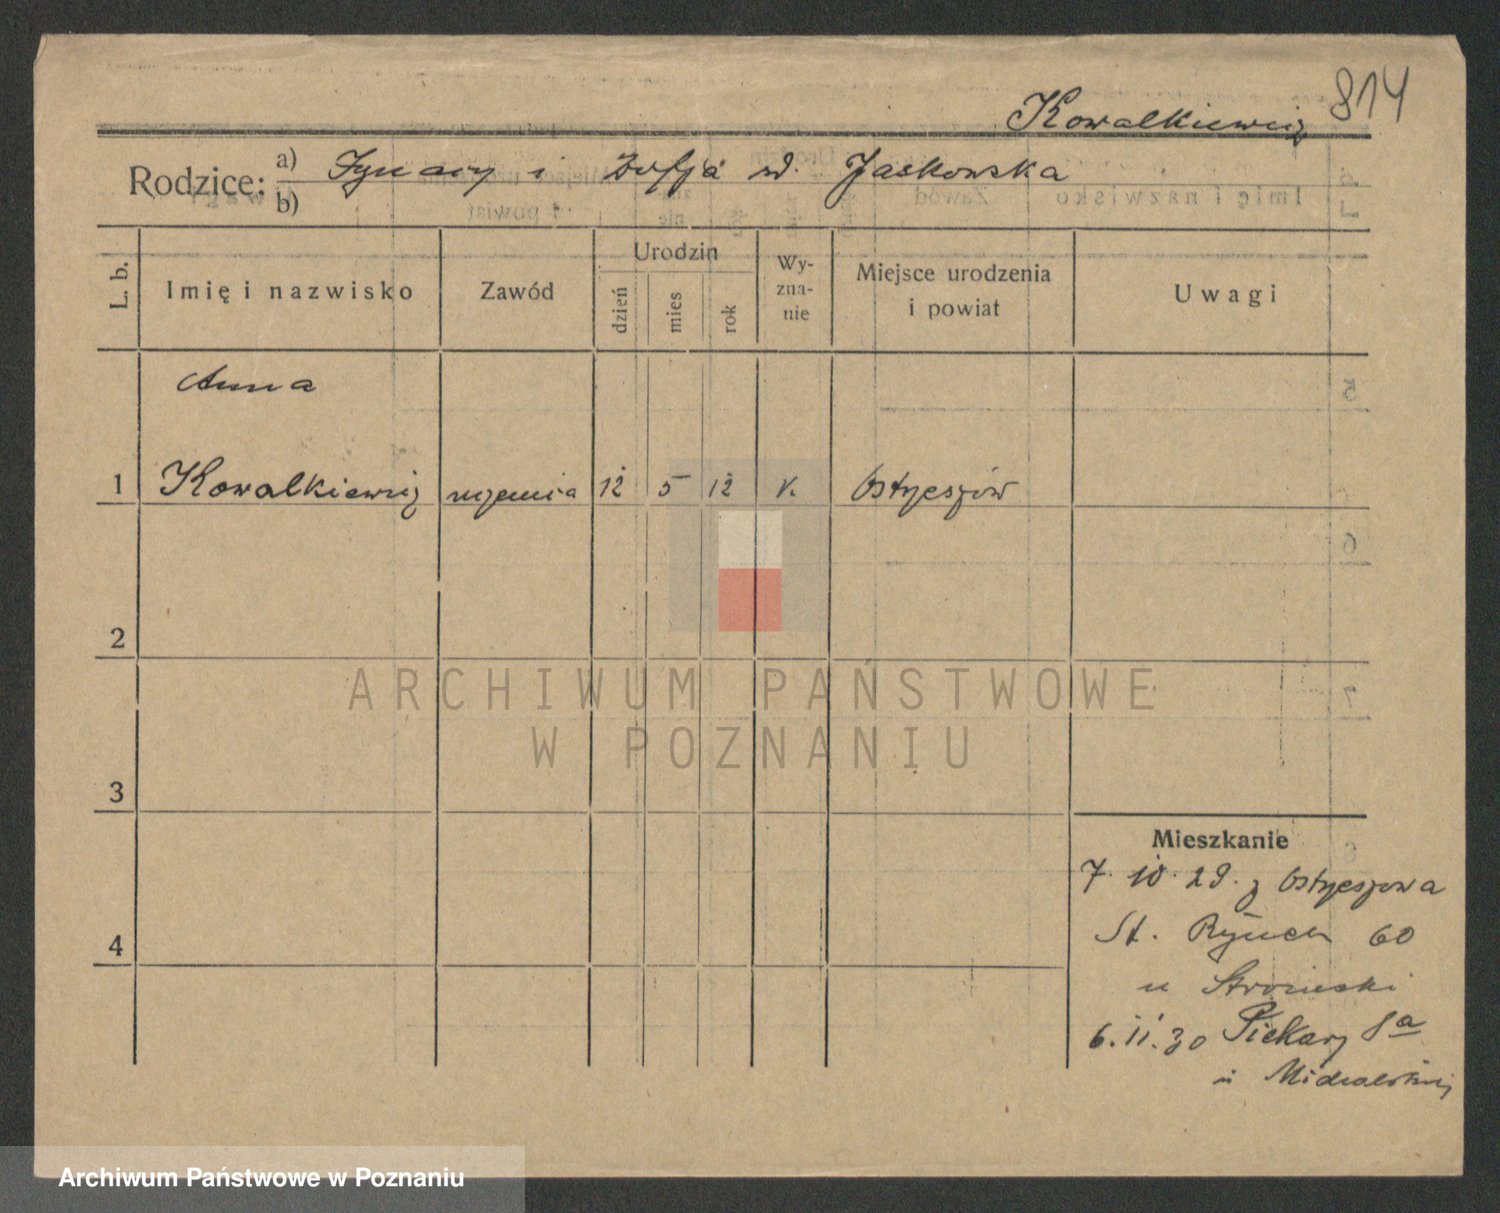 814
Kowalkiewicz
Rodzice: a) Ignacy i Zofja d. Jaskowska
b)
L. b.
Imię i nazwisko
Zawód
Urodzin
dzień
mies
rok
Wy-
zna-
nie
Miejsce urodzenia
i powiat
Uwagi
Anna
1 Kowalkiewicz uczenia 12 5 12 k. Ostrzeszów
2
ARCHIWUM PAŃSTWOWE
W POZNANIU
3
4
Mieszkanie
7. 10. 29. z Ostrzeszowa
St. Rynek 60
u Stroinski
6. 11. 30 Piekary 8a
u Michalskiej
Archiwum Państwowe w Poznaniu